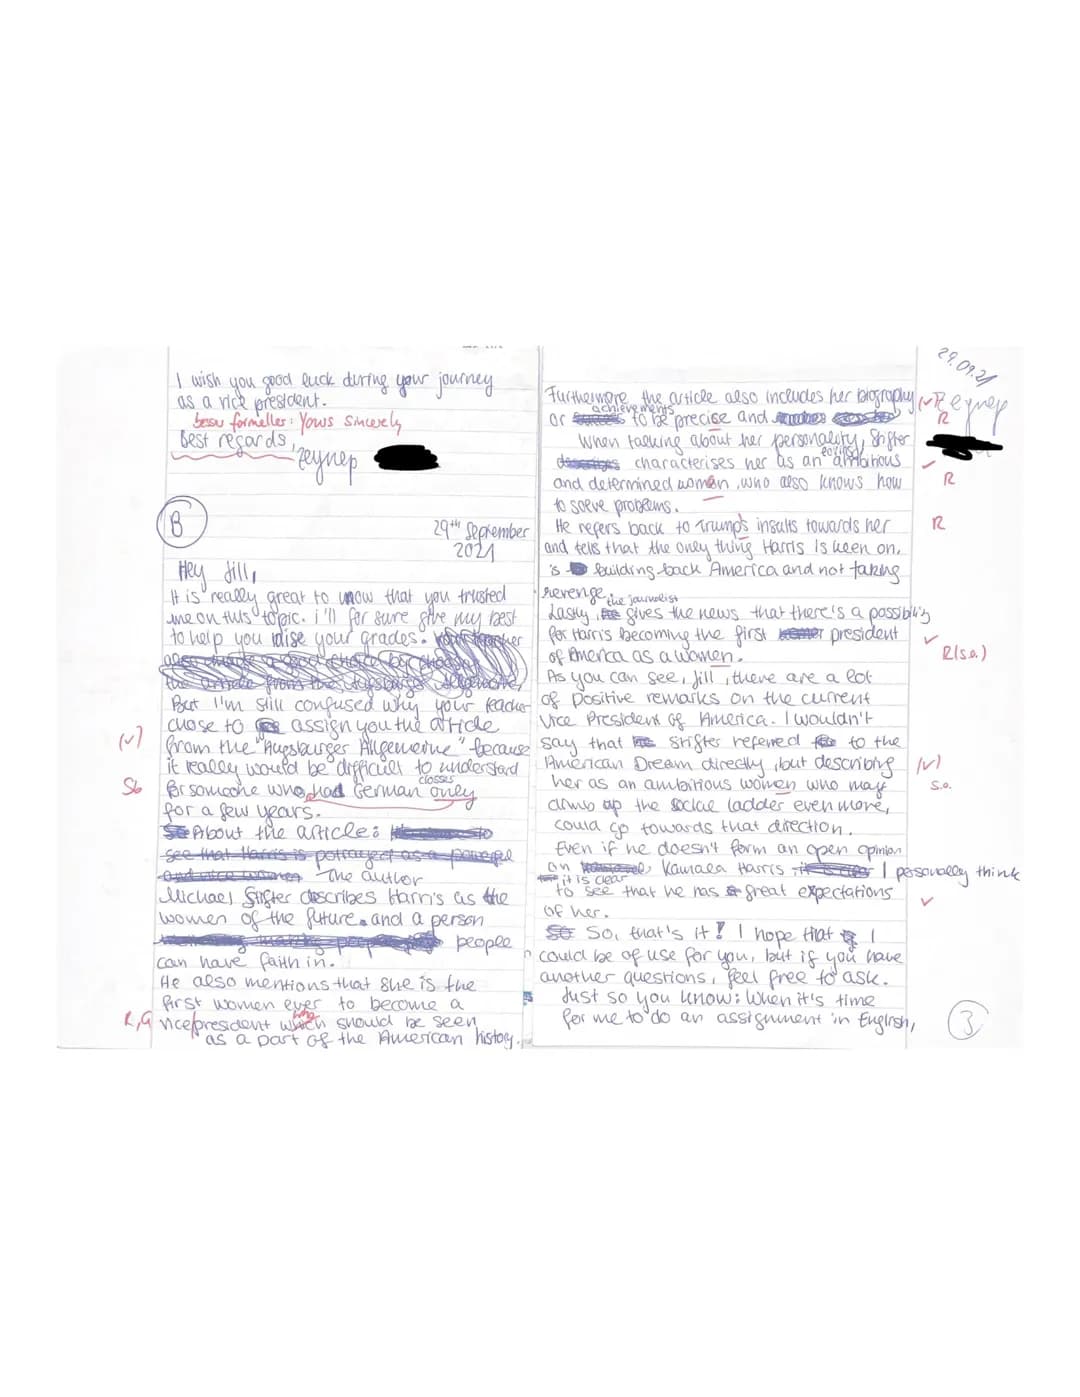 I wish you good luck during your journey
as a vice president.
besser formeller: Yours sincerely
Best regards,
Zeynep
B
29th September
2021
Hey Jill,
It is really great to know that you trusted
me on this topic. i'll for sure give my best
to help you your grades.
But I'm still confused why your teacher
chose to assign you the article
(✓) from the "Augsburger Allgemeine" because
it really would be difficult to understand
Sb for someone who had German classes only
for a few years.
About the article:
see that Harris is potrayed as a powerful
The author
Michael Stifter describes Harris as the
women of the future and a person
people
can have faith in.
He also mentions that she is the
first women ever to become a
R, G vice president which who should be seen
as a part of the American history.
29.09.21
Zeynep
Furthermore, the article also includes her biography (✓)
or achievements to be precise and R
When talking about her personality, Stifter
characterises her as an ambitious ✓
and determined women, who also knows how R
to solve problems.
He refers back to Trump's insults towards her R
and tells that the only thing Harris is keen on,
is building back America and not taking
revenge.
Lastly, the journalist gives the news that there's a possibility
for Harris becoming the first president ✓
of America as a women. R(s.o.)
As you can see, Jill, there are a lot
of positive remarks on the current
Vice President of America. I wouldn't
say that Stifter referred to the
American Dream directly, but describing (✓)
her as an ambitious women who may s.o.
climb up the social ladder even more,
could go towards that direction.
Even if he doesn't form an open opinion
on Kamala Harris, I personally think
it is clear
to see that he has great expectations ✓
of her.
So, that's it! I hope that I
could be of use for you, but if you have
another questions, feel free to ask.
Just so you know: When it's time
for me to do an assignment in English,
3